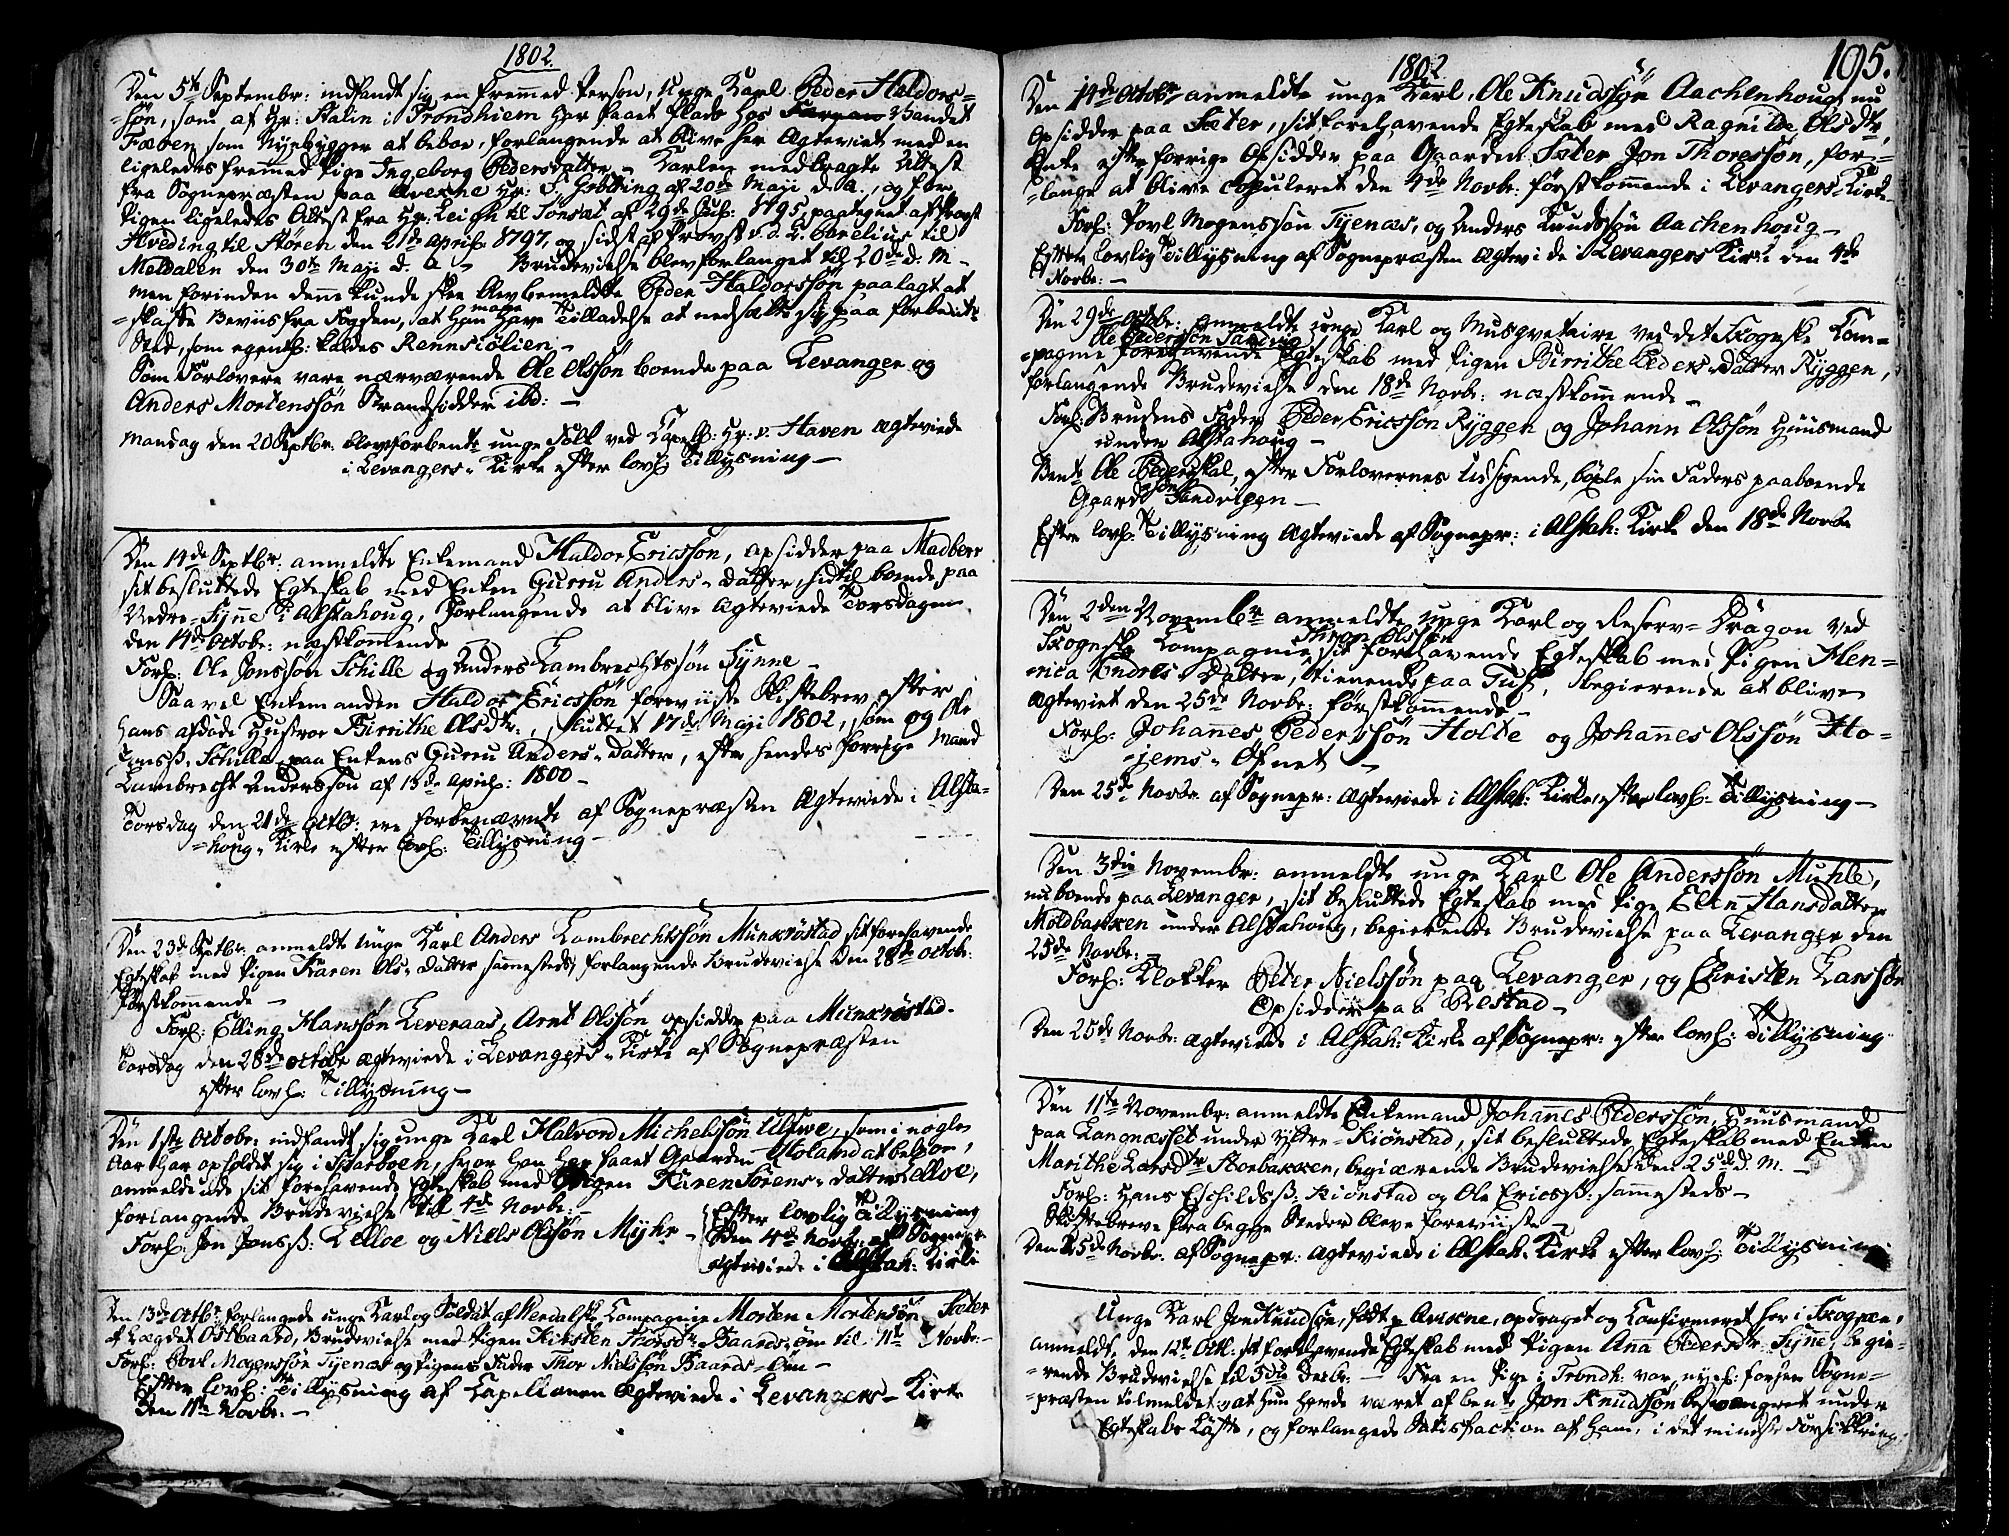 1802.
Den 5te Septembr: indfandt sig en fremmed Person, Unge Karl Peder Haldors=
=søn, som af Hr: Stalin i Trondhiem har faaet Plads hos Bandet
Færen som Nyebygger at beboe, forlangende at blive her Ægteviet med en
ligeledes fremmed Pige Ingeborg Pedersdatter – Karlen medbragte Attest
fra Sognepræsten paa Hr: Grølling af 20de Maji d. A., og for
Pigen ligeledes Attest fra Hr: Leigh til Tønsæt af 29de 1795, paategnet af Provst
Hveding til Støren den 21de April 1797, og sidst af Provst Barelius til
Meldalen den 30te Maji d. A – Brudevielse blev forlanget til 20de d: M –
Men forinden denne kunde skee blev bemeldte Peder Haldorssøn paalagt at
=skaffe Beviis fra Fogden, at han maae have Tilladelse at nedsætte sig paa forbente
Sted, som egentl: kaldes Rennsiølien –
Som Forlovere vare nærværende Ole Olssøn boende paa Levanger og
Anders Mortenssøn Strandsidder ibd: –
Mandag den 20 Septbr: blev forbente unge Folk ved Kapell: Hr: v. Haven Ægteviede
i Levangers Kirke efter lovl: Tillysning –
Den 14de Septbr: anmeldte Enkemand Haldor Ericssøn, opsidder paa Madberr
sit besluttede Egteskab med Enken Gurru Anders=datter, sidst boende paa
Nedre=Fynne i Alstahoug, forlangende at blive Ægteviede Torsdagen
den 14de Octobr: næstkommende
Forl: Ole Jonssøn Schille og Anders Lambrechtssøn Fynne –
Saavel Enkemanden Haldor Ericssøn foreviiste Skiftebrev efter
hans afdøde Hustroe Birrithe Olsdtr:, sluttet 17de Maji 1802, som og Ole
Jonss: Schille paa Enkens Gurru Anders=datter, efter hendes forrige Mand
Lambrecht Anderssøn af 15de April: 1800 –
Torsdag den 21de Octb: ere forbenævnte af Sognepræsten Ægteviede i Alsta=
=houg Kirke efter lovl: Tillysning –
Den 23de Septbr: anmeldte Unge Karl Anders Lambrechtssøn Munkrøstad sit forehavende
Egteskab med Pigen Karen Ols=datter sammesteds, forlangende Brudevielse den 28de Octobr:
førstkommende –
Forl: Elling Hanssøn Leveraas, Arnt Olssøn opsidder paa Munkrøstad.
Torsdag den 28de Octobr ægteviede i Levangers=Kirke af Sognepræsten
efter lovl: Tillysning –
Den 1ste Octobr: indfandt sig unge Karl Halvord Michelssøn Ulfwe, som i nogle
Aar har opholdet sig i Sparboen, hvor han har faaet Gaarden Holand at beboe,
anmeldende sit forehavende Egteskab med Pigen Karen Sørens=datter Lelloe,
forlangende Brudevielse til 4de Novbr: –
Forl: Jon Jonss: Lelloe og Niels Olssøn Myhr –
Efter lovlig Tillysning
Den 4de Novbr: af Sognepr
ægteviede i Alstah: Kirke
Den 13de Octbr forlangede unge Karl og Soldat af Werdalske Compagnie Morten Mortenssøn Sæter
af Lægdet Ostkaard, Brudevielse med Pigen Kirsten Thorsdtr Baards=om til 11te Novbr: –
Forl: Povl Mogenssøn Tyenæs og Pigens Fader Thor Nielssøn Baards=Om –
Efter lovl: Tillysning af Capellanen Ægteviede i Levangers=Kirke
Den 11te Novbr: –
1802
195.
Den 14de Octobr anmeldte unge Karl, Ole Knudssøn Aachenhoug nu
Opsidder paa Sæter, sit forehavende Egteskab med Ragnilde Olsdtr,
Enke efter forrige Opsidder paa Gaarden Sæter Jon Thoressøn, for=
=langer at blive copuleret den 4de Novbr: førstkommende i Levangers Kirke –
Forl: Povl Mogenssøn Tyenæs, og Anders Knudssøn Aachenhoug –
Efter lovlig Tillysning af Sognepræsten Ægteviede i Levangers Kirke den 4de
Novbr: –
Den 29de Octbr: anmeldte unge Karl og Musqvetaire ved det Skognske Kom=
Ole Pederssøn Sandvig
=pagnie forehavende Egteskab med Pigen Birrithe Peders=datter Ryggen,
forlangende Brudevielse den 18de Novbr: næstkommende –
Forl: Brudens Fader Peder Ericssøn Ryggen og Johann Olssøn Huusmand
under Alstahoug –
Bente Ole Pederssøn skal, efter Forlovernes Udsigende, bøxle sin Faders paaboende
Gaard Sandvigen –
Efter lovl: Tillysning Ægteviede af Sognepr: i Alstah: Kirke den 18de Novbr
Den 2den Novembr anmeldte unge Karl og Reserv=Dragon ved
Skognske Compagnie Olssøn sit forehavende Egteskab med Pigen Hen=
=rica Endres=datter, tienende paa Tuf, begierende at blive
Ægteviet den 25de Novbr: førstkommende –
Forl: Johannes Pederssøn Holte og Johannes Olssøn Ho=
=jems=Ofnet –
Den 25de Novbr af Sognepr: Ægteviede i Alstah: Kirke, efter lovl: Tillysning –
Den 3die Novembr: anmeldte unge Karl Ole Anderssøn Muhle,
nu boende paa Levanger, sit besluttede Egteskab med Pige Elen Hansdatter
Moldbakken under Alstahoug, begierende Brudevielse paa Levanger den
25de Novbr: –
Forl: Klokker Peter Nielssøn paa Levanger, og Christen Larssøn
Opsidder paa Restad –
Den 25de Novbr: Ægteviede i Alstah: Kirke af Sognepr: efter lovl: Tillysning
Den 11te Novembr: anmeldte Enkemand Johannes Pederssøn, Huusmand
paa Langnæsset under Yttre=Kiønstad, sit besluttede Egteskab med Enken
Marithe Larsdtr Storbakken, begiærende Brudevielse den 25de d. M. –
Forl: Hans Eschildss: Kiønstad og Ole Ericss: sammesteds –
Skiftebreve fra begge Steder bleve foreviiste –
Den 25de Novbr. af Sognepr: Ægteviede i Alstah: Kirke efter lovl: Tillysning
Unge Karl Jon Knudssøn, født p Aviskne, opdraget og Confirmeret her i Skognen,
anmeldte den 12te Octb: sit forehavende Egteskab med Pigen Ana Pedersdtr Fynne, begie=
=rende Brudevielse til 3die Decbr: – Fra en Pige i Trondh: var nyel: forhen Sogne=
=præsten tilmeldet, at hun havde været af bente Jon Knudssøn besvangret under
Egteskabs Løfte, og forlangede Satisfaction af ham, i det mindste Forsikkring